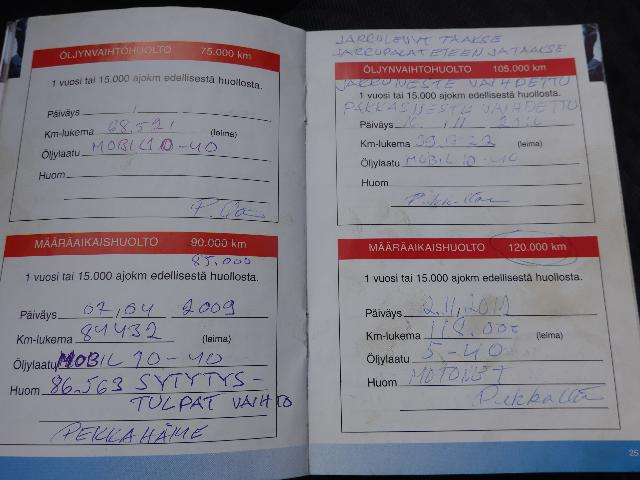 ÖLJYNVAIHTOHUOLTO 75.000 km
1 vuosi tai 15.000 ajokm edellisestä huollosta.
Päiväys
Km-lukema 68.521 (leima)
Öljylaatu MOBIL 10-40
Huom
MÄÄRÄAIKAISHUOLTO 90.000 km
85.000
1 vuosi tai 15.000 ajokm edellisestä huollosta.
Päiväys 07.04 2009
Km-lukema 84432 (leima)
Öljylaatu MOBIL 10-40
Huom 86.563 SYTYTYS-
TULPAT VAIHTO
PEKKA HÄME
JARRULEVYT TAAKSE
JARRUPALAT ETEEN JA TAAKSE
ÖLJYNVAIHTOHUOLTO 105.000 km
JARRUNESTE VAIHDETTU
1 vuosi tai 15.000 ajokm edellisestä huollosta.
PAKKASNESTE VAIHDETTU
Päiväys
Km-lukema (leima)
Öljylaatu MOBIL 10-40
Huom
MÄÄRÄAIKAISHUOLTO 120.000 km
1 vuosi tai 15.000 ajokm edellisestä huollosta.
Päiväys 2.11.2012
Km-lukema 118.000 (leima)
Öljylaatu 5-40
Huom MOTONET
25